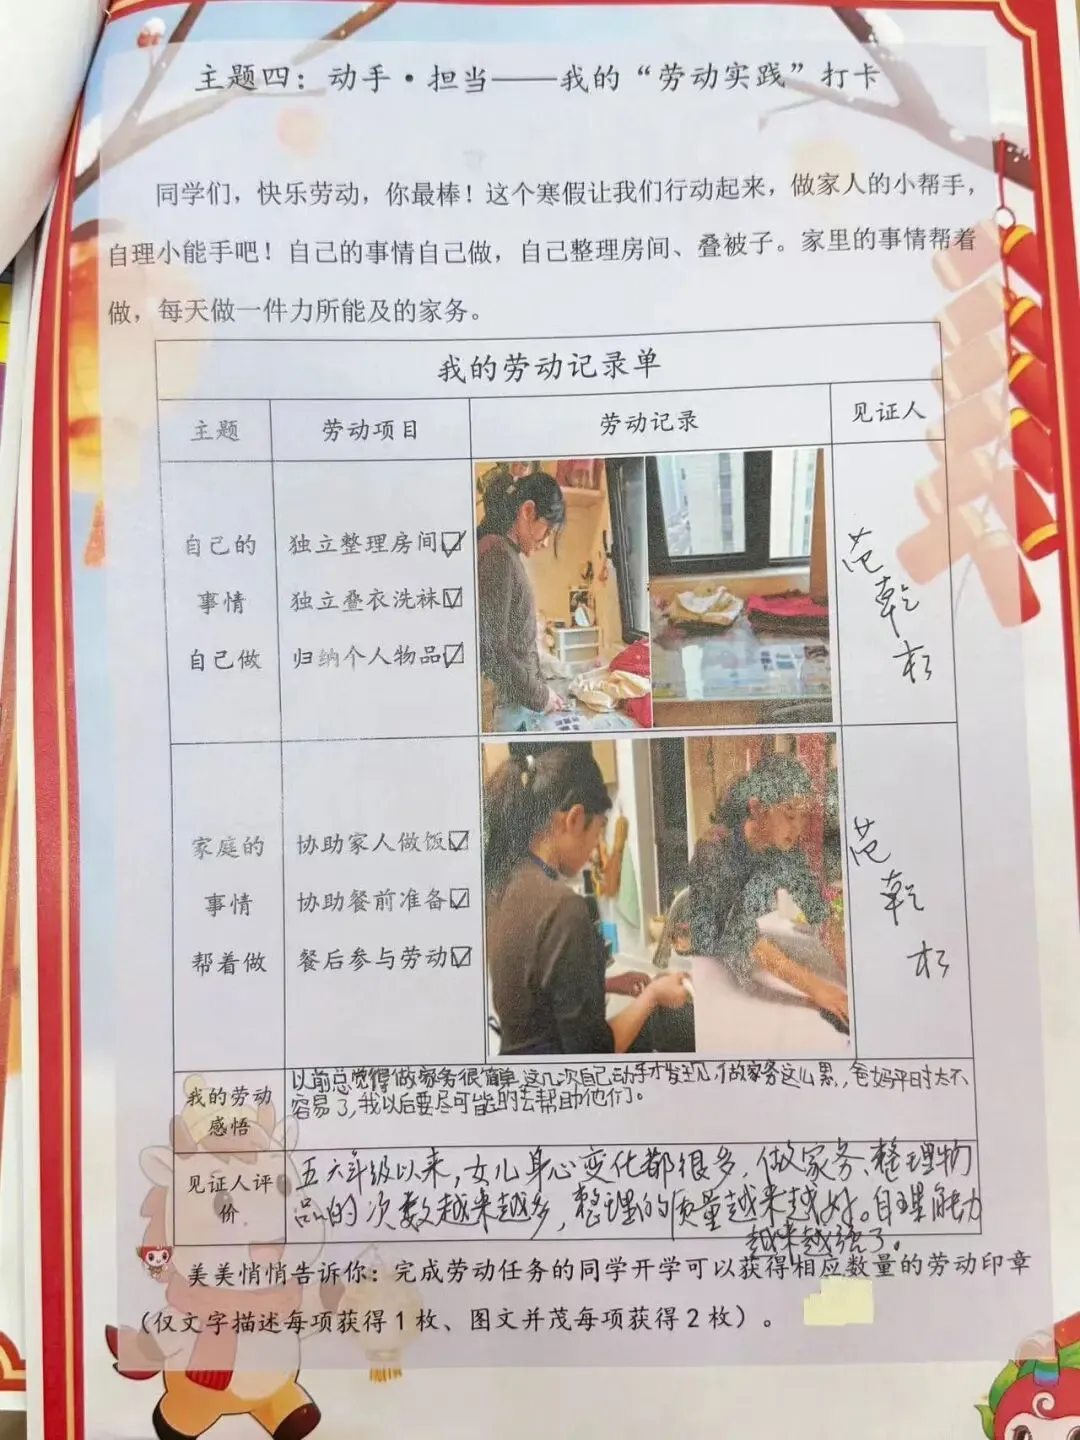 主题四：动手·担当——我的“劳动实践”打卡
同学们，快乐劳动，你最棒！这个寒假让我们行动起来，做家人的小帮手，
自理小能手吧！自己的事情自己做，自己整理房间、叠被子。家里的事情帮着
做，每天做一件力所能及的家务。
我的劳动记录单
主题 劳动项目 劳动记录 见证人
自己的 独立整理房间☑
事情 独立叠衣洗袜☑
自己做 归纳个人物品☑
范乾杉
家庭的 协助家人做饭☑
事情 协助餐前准备☑
帮着做 餐后参与劳动☑
范乾杉
我的劳动
感悟
以前总觉得做家务很简单,这几次自己动手才发现,做家务这么累,爸妈平时太不
容易了,我以后要尽可能的去帮助他们。
见证人评
价
五六年级以来,女儿身心变化都很多,做家务、整理物
品的次数越来越多,整理的质量越来越好。自理能力
越来越强了。
美美悄悄告诉你：完成劳动任务的同学开学可以获得相应数量的劳动印章
（仅文字描述每项获得1枚、图文并茂每项获得2枚）。